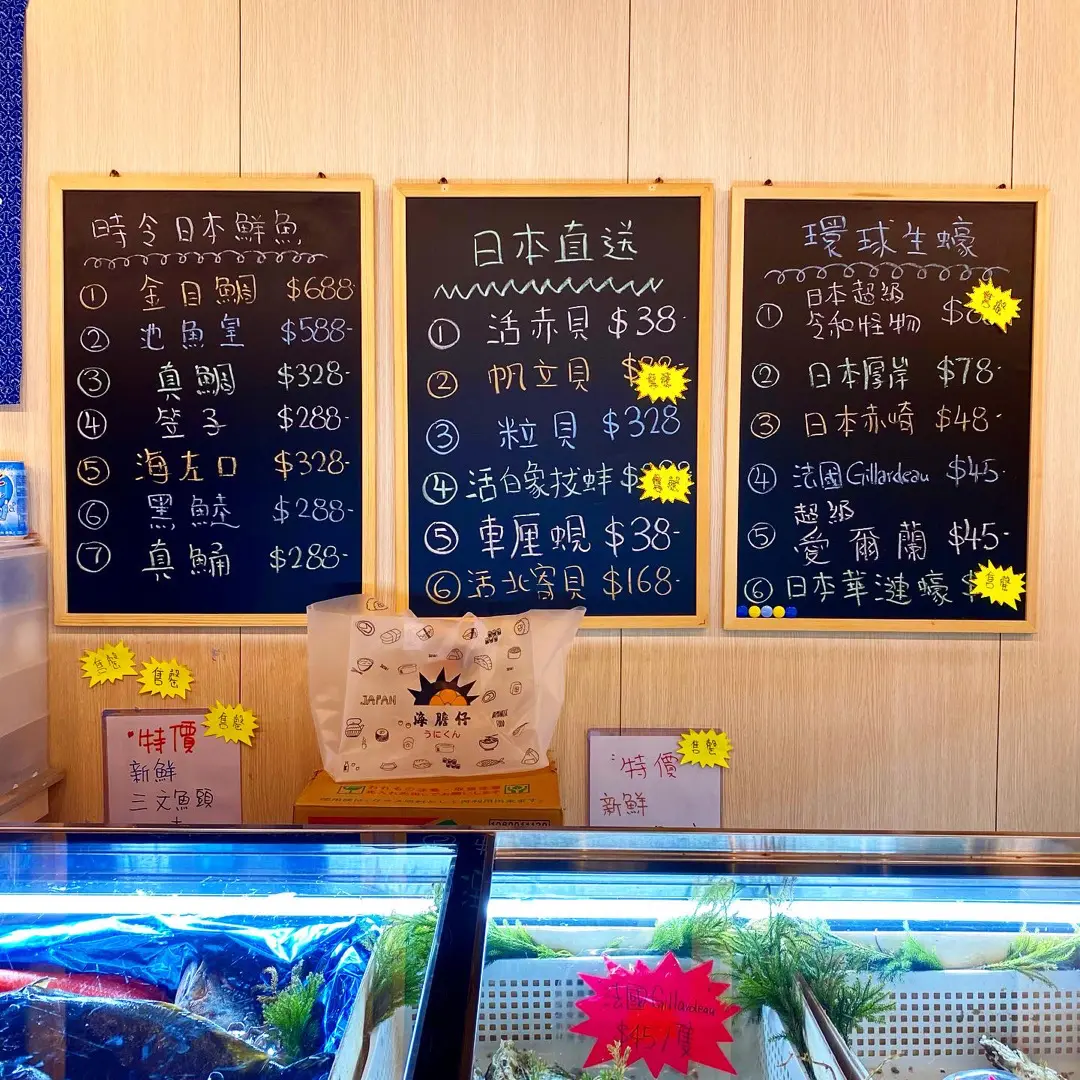 時令日本鮮魚
① 金目鯛 $688-
② 池魚皇 $588-
③ 真鯛 $328-
④ 笠子 $288-
⑤ 海左口 $328-
⑥ 黑鮭 $288-
⑦ 真鯒 $288-
日本直送
① 活赤貝 $38-
② 帆立貝
售罄
③ 粒貝 $328
④ 活白象拔蚌
售罄
⑤ 車厘蜆 $38-
⑥ 活北寄貝 $168-
環球生蠔
① 日本超級
令和怪物
售罄
② 日本厚岸 $78-
③ 日本赤崎 $48-
④ 法國Gillardeau $45-
⑤ 超級
愛爾蘭 $45-
⑥ 日本華漣蠔
售罄
售罄
售罄
售罄
特價
新鮮
三文魚頭
JAPAN
海膽仔
うにくん
售罄
特價
新鮮
法國Gillardeau
$45/隻